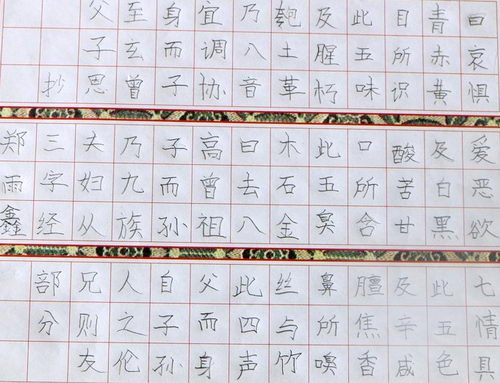 曰哀惧爱恶欲七情具
青赤黄及白黑此五色
目所识酸苦甘及辛咸
此五味口所含膻焦香
及腥朽此五臭鼻所嗅
匏土革木石金丝与竹
乃八音曰去八此四声
宜调协高曾祖父而身
身而子子而孙自子孙
至玄曾乃九族人之伦
父子思夫妇从兄则友
抄三字经部分
郑雨鑫